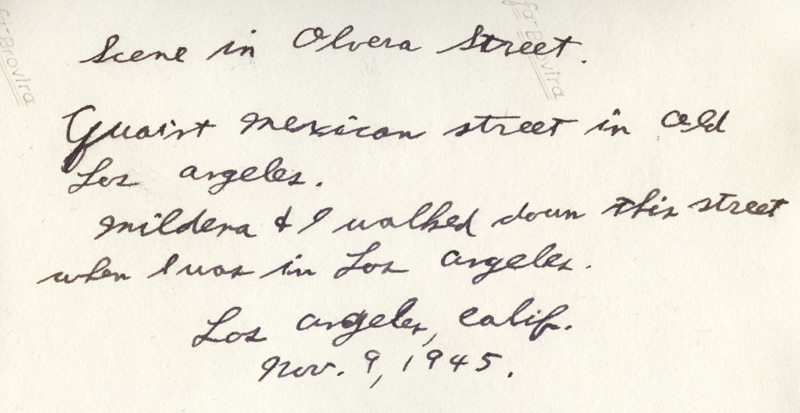 Scene in Olvera Street.
Quaint Mexican street in old
Los Angeles.
Mildena & I walked down this street
when I was in Los Angeles.
Los Angeles, Calif.
Nov. 9, 1945.
fa-Brovira
fa-Brovira